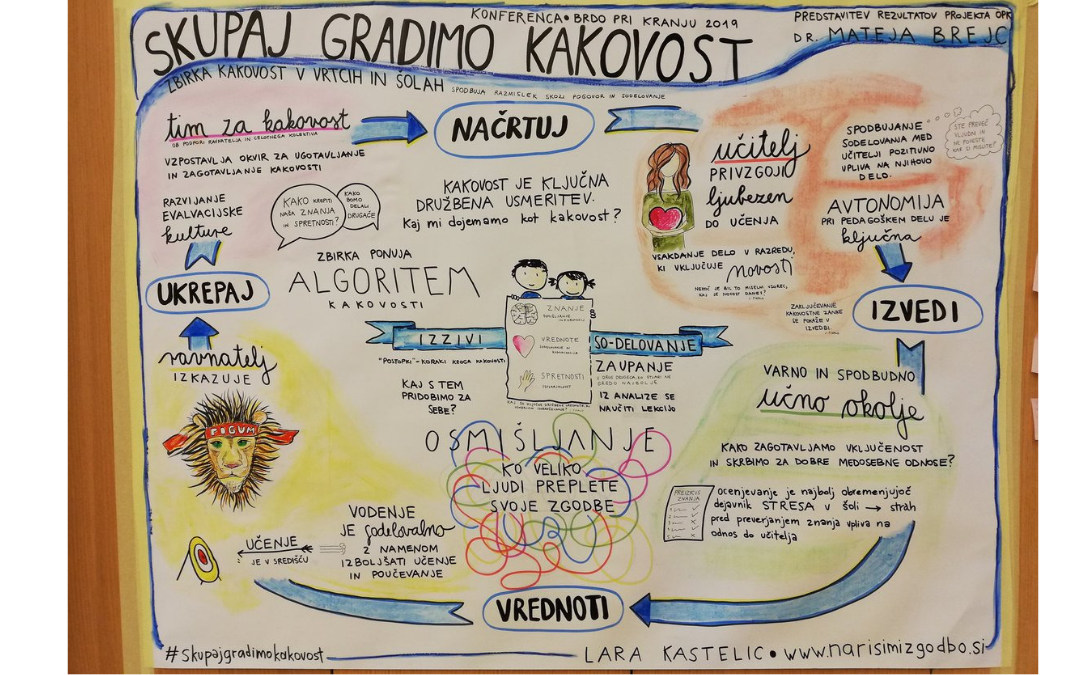 KONFERENCA • BRDO PRI KRANJU 2019
SKUPAJ GRADIMO KAKOVOST
PREDSTAVITEV REZULTATOV PROJEKTA OPK
DR. MATEJA BREJC
ZBIRKA KAKOVOST V VRTCIH IN ŠOLAH
SPODBUJA RAZMISLEK SKOZI POGOVOR IN SODELOVANJE
tim za kakovost
OB PODPORI RAVNATELJA IN CELOTNEGA KOLEKTIVA
VZPOSTAVLJA OKVIR ZA UGOTAVLJANJE
IN ZAGOTAVLJANJE KAKOVOSTI
RAZVIJANJE
EVALVACIJSKE
kulture
KAKO KREPITI
NAŠA ZNANJA
IN SPRETNOSTI?
KAKO
BOMO
DELALI
DRUGAČE?
NAČRTUJ
KAKOVOST JE KLJUČNA
DRUŽBENA USMERITEV.
Kaj mi dojemamo kot kakovost?
učitelj
PRIVZGOJI
ljubezen
DO UČENJA
VSAKDANJE DELO V RAZREDU,
KI VKLJUČUJE novosti
SPODBUJANJE
SODELOVANJA MED
UČITELJI POZITIVNO
VPLIVA NA NJIHOVO
DELO.
STE PREVEČ
VLJUDNI IN
NE POVESTE
KAR SI MISLITE?
AVTONOMIJA
PRI PEDAGOŠKEM DELU JE
ključna
UKREPAJ
ZBIRKA PONUJA
ALGORITEM
KAKOVOSTI
ZNANJE
VREDNOTE
SPRETNOSTI
IZZIVI
SO-DELOVANJE
"POSTOPKI"-KORAKI KROGA KAKOVOSTI
KAJ S TEM
PRIDOBIMO ZA
SEBE?
ZAUPANJE
IZ ANALIZE SE
NAUČITI LEKCIJO
ZAKLJUČEVANJE
KAKOVOSTNE ZANKE
SE POKAŽE V
IZVEDBI
IZVEDI
ravnatelj
IZKAZUJE
POGUM
OSMIŠLJANJE
KO VELIKO
LJUDI PREPLETE
SVOJE ZGODBE
VARNO IN SPODBUDNO
učno okolje
KAKO ZAGOTAVLJAMO VKLJUČENOST
IN SKRBIMO ZA DOBRE MEDOSEBNE ODNOSE?
ocenjevanje je najbolj obremenjujoč
dejavnik STRESA v šoli → strah
pred preverjanjem znanja vpliva na
odnos do učitelja
UČENJE
JE V SREDIŠČU
VODENJE
JE sodelovalno
Z NAMENOM
IZBOLJŠATI UČENJE
IN POUČEVANJE
VREDNOTI
#skupajgradimokakovost
LARA KASTELIC • www.narisimizgodbo.si